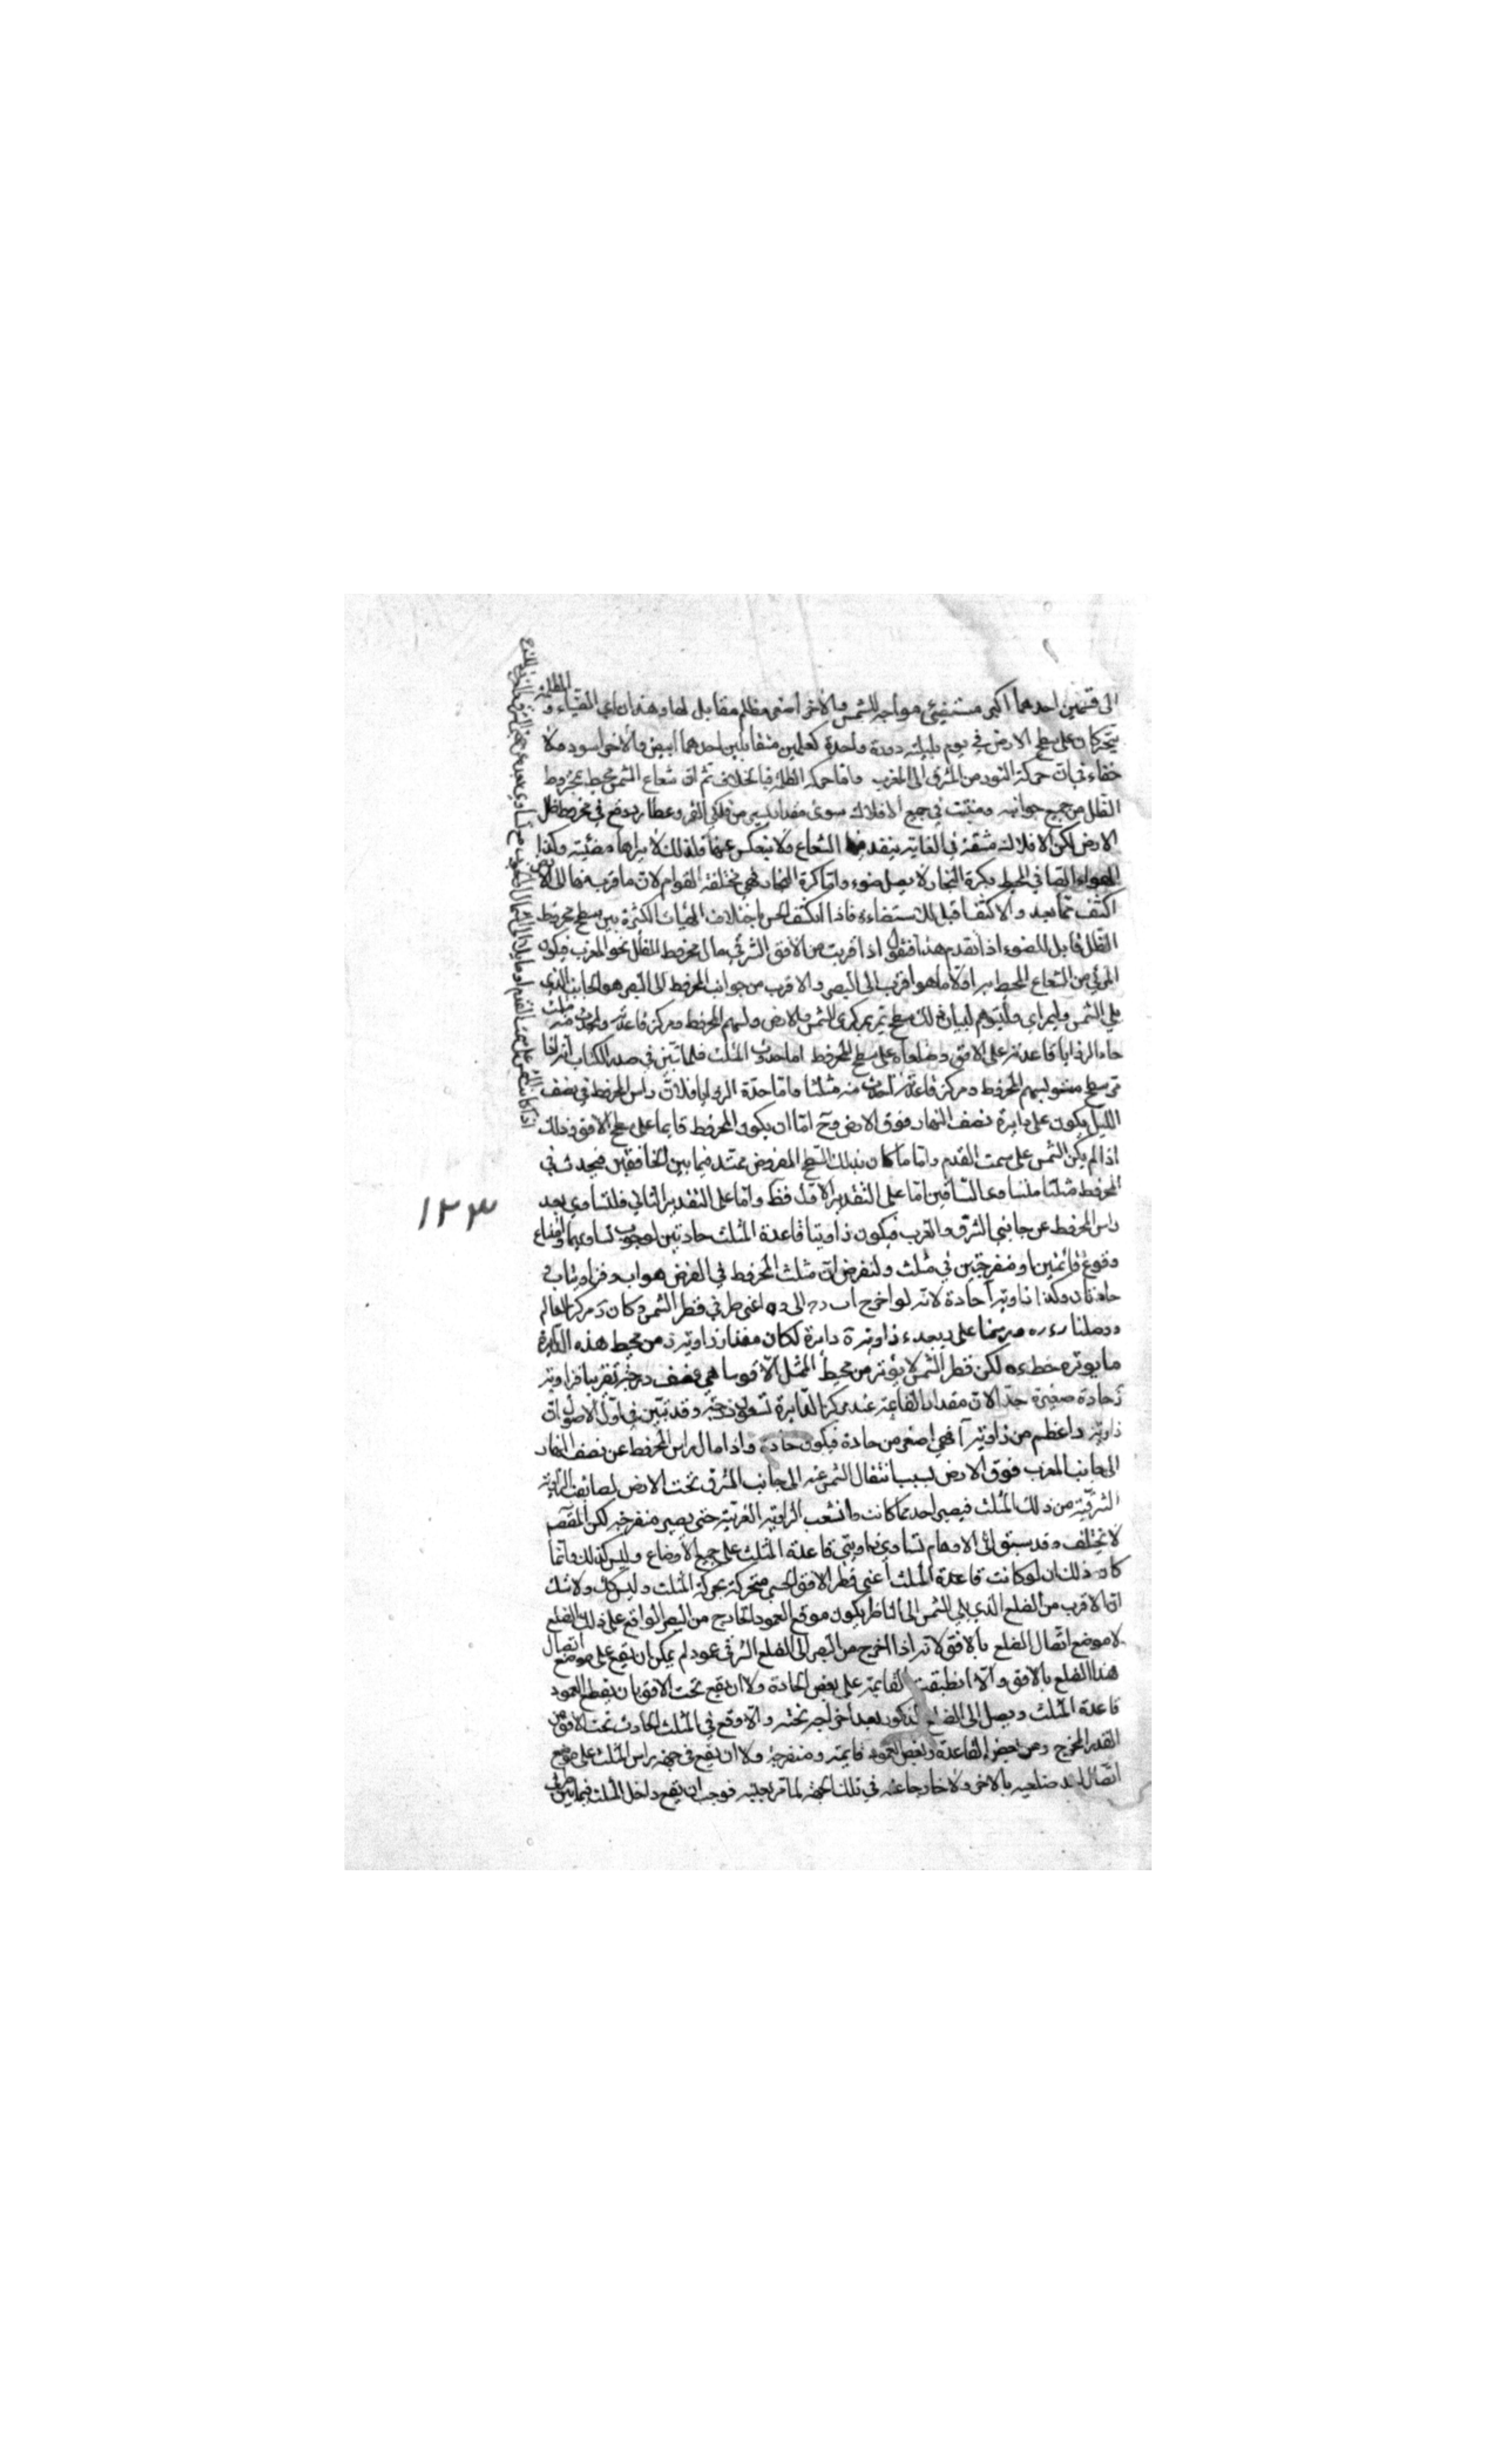 الى قسمين احدهما اكبر مستضيئ مواجه للشمس والاخر اصغر مظلم مقابل لها وهذان اي الضياء و الظلمة
يتحركان على سطح الارض في يوم بليلته دورة واحدة كعلمين متقابلين احدهما ابيض والاخر اسود ولا
خفاء في ان حركة النور من المشرق الى المغرب واما حركة الظلمة فبالخلاف ثم ان شعاع الشمس محيط بمخروط
الظل من جميع جوانبه ومنبث في جميع الافلاك سوى مقدار يسير من فلكي القمر وعطارد وقع في مخروط ظل
الارض لكن الافلاك مشفة في الغاية ينفد فيها الشعاع ولا ينعكس عنها فلذلك لا نراها مضيئة وكذا
الهواء الصافي المحيط بكرة البخار لا يقبل ضوء واما كرة البخار فهي مختلفة القوام لان ما قرب منها الى الارض
اكثف مما بعد والاكثف اقبل للاستضاءة فاذا الكثيف الخشن باختلاف الهيئات الكثيرة بين سطح مخروط
الظل قابل للضوء اذا تقدم هذا فنقول اذا قربت من الافق الشرقي مال مخروط الظل نحو المغرب فيكون
المرئي من الشعاع المحيط به اولا ما هو اقرب الى البصر والاقرب من جوانب المخروط الى البصر هو الجانب الذي
يلي الشمس وليتوهم لبيان ذلك سطح يمر بمركزي الشمس والارض وبسهم المخروط ومركز قاعدته ويحدث منه مثلث
حاد الزوايا قاعدته على الافق وضلعاه على سطح المخروط اما حدوث المثلث فلما تبين في صدر الكتاب انه اذا
مر سطح مستو بسهم المخروط ومركز قاعدته احدث منه مثلثا واما حدة الزوايا فلان راس المخروط في نصف
الليل يكون على دايرة نصف النهار فوق الارض وح اما ان يكون المخروط قايما على سطح الافق وذلك
اذا لم يكن الشمس على سمت القدم واما ما كان فذلك السطح المفروض ممتد فيما بين الخافقين فيحدث في
المخروط مثلثا متساوي الساقين اما على التقدير الاول فظ واما على التقدير الثاني فلتساوي بعد
راس المخروط عن جانبي الشرق والغرب فيكون زاويتا قاعدة المثلث حادتين لوجوب تساويهما وامتناع
وقوع قائمتين او منفرجتين في مثلث ولنفرض ان مثلث المخروط في الفرض هو اب ج فزاويتا ب ج
حادتان وكذا زاوية آ حادة لانه لو اخرج اب ا ج الى د ه اعني طرفي قطر الشمس وكان ز مركز العالم
ووصلنا زد زه ورسمنا على ز ببعد زاوية دايرة لكان مقدار زاوية ز من محيط هذه الدايرة
ما يوتره خط ده لكن قطر الشمس لا يوتر من محيط الممثل الا قوسا هي نصف درجة تقريبا فزاوية
ز حادة صغيرة جدا لان مقدار القايمة عند مركز الدايرة تسعون درجة وقد تبين في اول الاصول ان
زاوية ز اعظم من زاوية آ فهي اصغر من حادة فيكون حادة واذا مال راس المخروط عن نصف النهار
الى جانب المغرب فوق الارض بسبب انتقال الشمس عنه الى جانب المشرق تحت الارض تضايقت الزاوية
الشرقية من ذلك المثلث فيصير احد مما كانت وانشعب الزاوية الغربية حتى يصير منفرجة لكن المقصود
لا يختلف وقد سبق الى الاوهام تساوي زاويتي قاعدة المثلث على جميع الاوضاع وليس كذلك وانما
كان ذلك ان لو كانت قاعدة المثلث اعني قطر الافق الحسي متحركة بحركة المثلث وليس كك ولا شك
ان الاقرب من الضلع الذي يلي الشمس الى الناظر يكون موقع العمود الخارج من البصر الواقع على ذلك الضلع
لا موضع اتصال الضلع بالافق لانه اذا اخرج من البصر الى الضلع الشرقي عود لم يمكن ان يقع على موضع اتصال
هذا الضلع بالافق والا انطبقت القايمة على بعض الحادة ولا ان يقع تحت الافق بان يقطع العمود
قاعدة المثلث ويصل الى الضلع المذكور بعد اخراجه تحته والا وقع في المثلث الحادث تحت الافق من
القدر المخرج ومن بعض القاعدة وبعض العمود قايمة ومنفرجة ولا ان يقع في جهة راس المثلث على موضع
اتصال احد ضلعيه بالاخر ولا خارجا عنه في تلك الجهة لما مر بعينه فوجب ان يقع داخل المثلث فيما بين طرفي
١٢٣